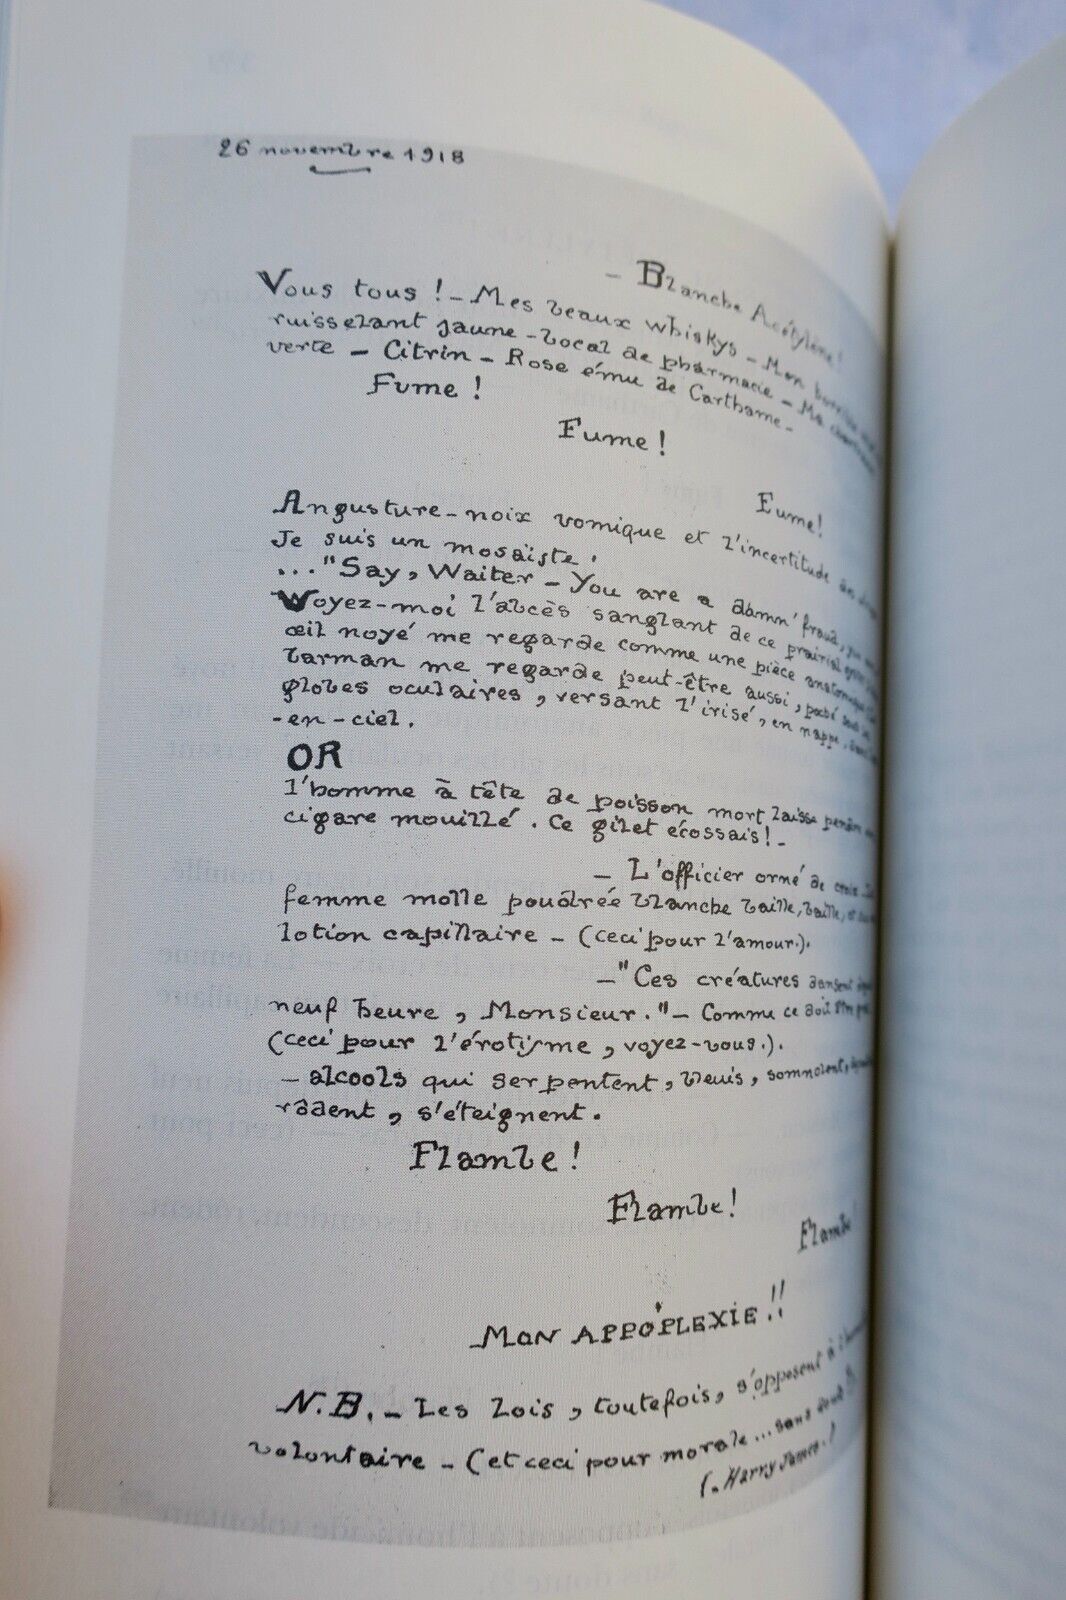 26 novembre 1918
– Blanche Acétylène!
Vous tous ! – Mes beaux whiskys – Mon
ruisselant jaune – bocal de pharmacie – Ma
verte – Citrin – Rose ému de Carthame –
Fume !
Fume !
Fume !
Angusture – noix vomique et l'incertitude
Je suis un mosaïste.
... "Say, Waiter – You are a damn' fraud,
Voyez-moi l'abcès sanglant de ce prairial
œil noyé me regarde comme une pièce
barman me regarde peut-être aussi, poché sous
globes oculaires, versant l'irisé, en nappe,
-en-ciel.
OR
l'homme à tête de poisson mort laisse
cigare mouillé. Ce gilet écossais! –
– L'officier orné de croix
femme molle poudrée blanche baille, baille,
lotion capillaire – (ceci pour l'amour.).
– "Ces créatures dansent
neuf heure, Monsieur." – Comme ce doit
(ceci pour l'érotisme, voyez-vous.).
– alcools qui serpentent, bleuis, somnolent,
rôdent, s'éteignent.
Flambe !
Flambe !
Flambe
MON APPOPLEXIE !!
N.B. – Les lois, toutefois, s'opposent à
volontaire – (et ceci pour morale... sans
(. Harry James.)